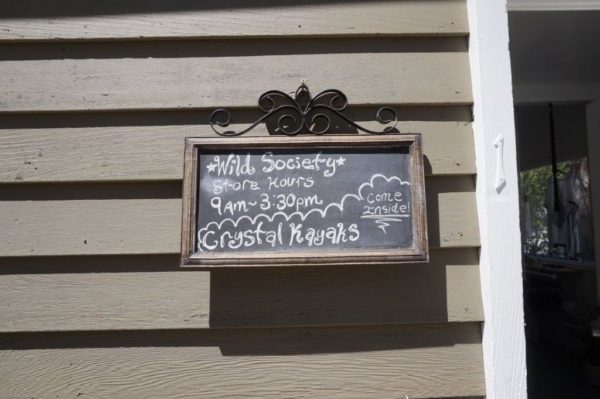 *Wild Society*
Store Hours
9am~3:30pm
Come
Inside!
Crystal Kayaks
1